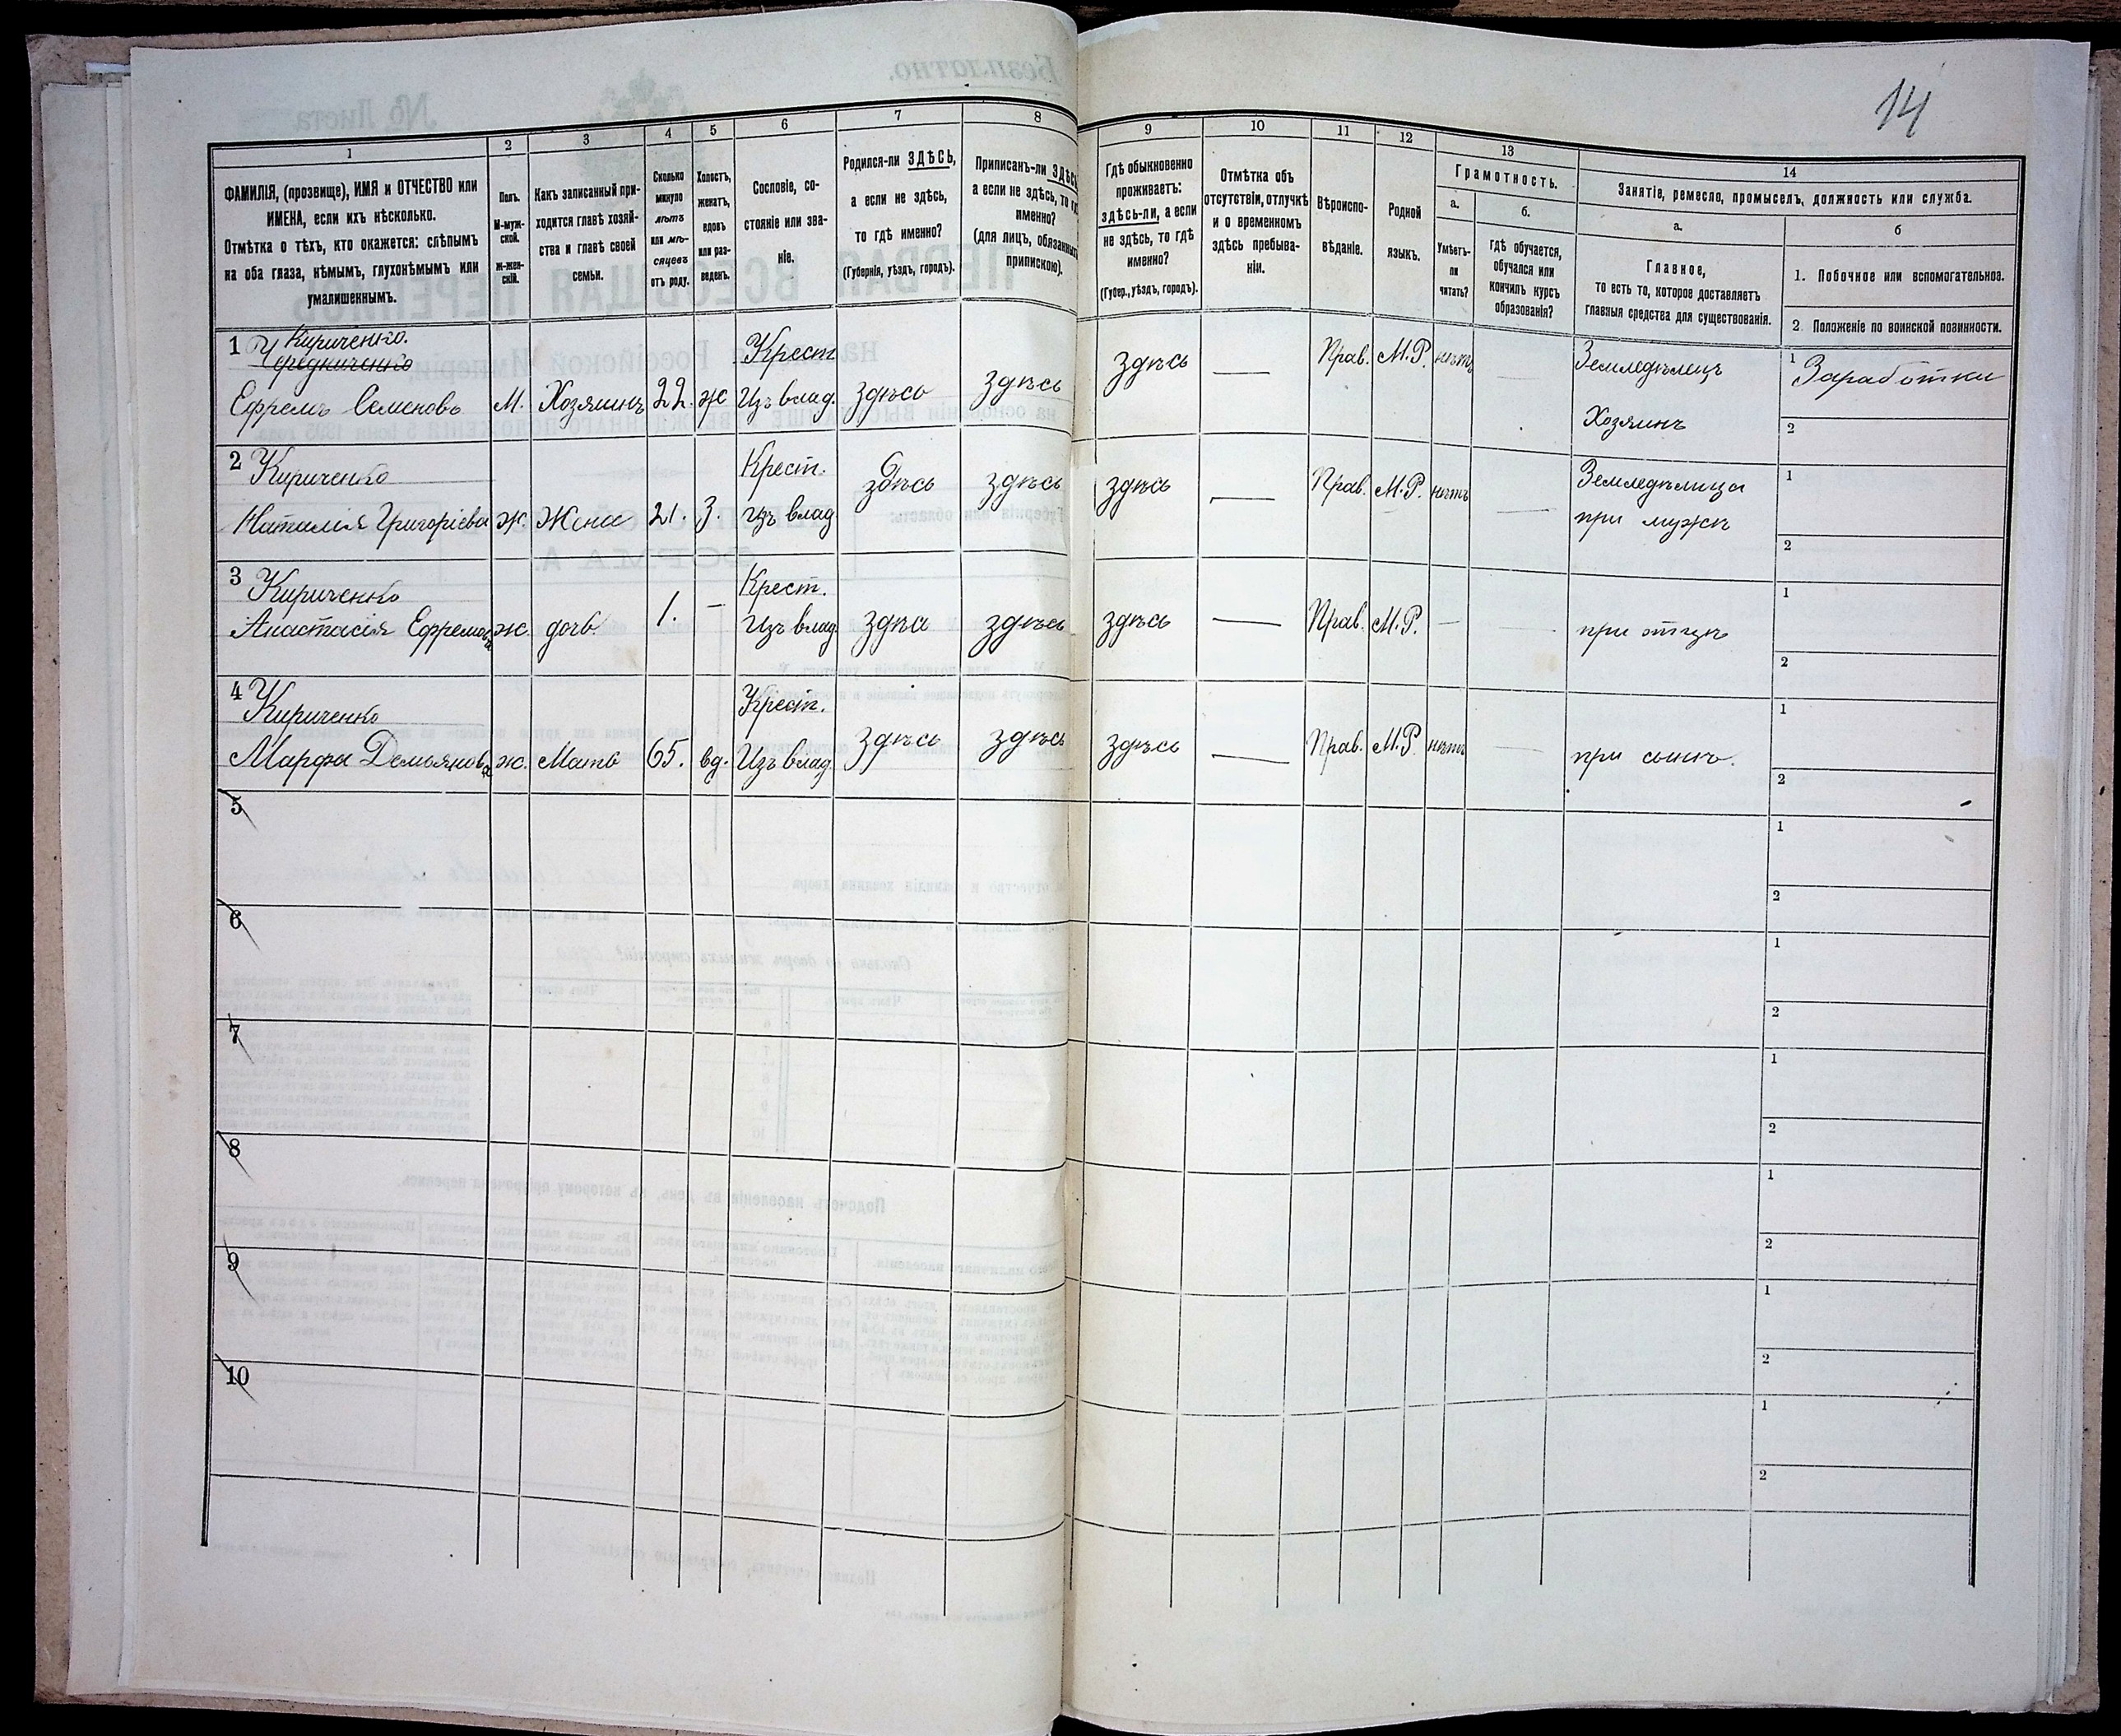 14
1
2
3
4
5
6
7
8
9
10
11
12
13
14
ФАМИЛІЯ, (прозвище), ИМЯ и ОТЧЕСТВО или
ИМЕНА, если ихъ нѣсколько.
Отмѣтка о тѣхъ, кто окажется: слѣпымъ
на оба глаза, нѣмымъ, глухонѣмымъ или
умалишеннымъ.
Полъ.
М-муж-
ской.
ж-жен-
скій.
Какъ записанный при-
ходится главѣ хозяй-
ства и главѣ своей
семьи.
Сколько
минуло
лѣтъ
или мѣ-
сяцевъ
отъ роду.
Холостъ,
женатъ,
вдовъ
или раз-
веденъ.
Сословіе, со-
стояніе или зва-
ніе.
Родился-ли ЗДѢСЬ,
а если не здѣсь,
то гдѣ именно?
(Губернія, уѣздъ, городъ).
Приписанъ-ли ЗДѢСЬ,
а если не здѣсь, то гдѣ
именно?
(для лицъ, обязанныхъ
припискою).
Гдѣ обыкновенно
проживаетъ:
здѣсь-ли, а если
не здѣсь, то гдѣ
именно?
(Губер., уѣздъ, городъ).
Отмѣтка объ
отсутствіи, отлучкѣ
и о временномъ
здѣсь пребыва-
ніи.
Вѣроиспо-
вѣданіе.
Родной
языкъ.
Грамотность.
а.
Умѣетъ-
ли
читать?
б.
гдѣ обучается,
обучался или
кончилъ курсъ
образованія?
Занятіе, ремесло, промыселъ, должность или служба.
а.
Главное,
то есть то, которое доставляетъ
главныя средства для существованія.
б
1. Побочное или вспомогательное.
2. Положеніе по воинской повинности.
1 Кириченко.
Чередниченко
Ефремъ Семеновъ М. Хозяинъ 22. ж Крест
Изъ влад. здѣсь здѣсь здѣсь — Прав. М.Р. нѣтъ — Земледѣлецъ
Хозяинъ
1 Заработки
2
2 Кириченко
Наталія Григорієва ж. Жена 21. З. Крест.
Изъ влад здѣсь здѣсь здѣсь — Прав. М.Р. нѣтъ — Земледѣлица
при мужѣ
1
2
3 Кириченко
Анастасія Ефремова ж. дочь. 1. — Крест.
Изъ влад здѣсь здѣсь здѣсь — Прав. М.Р. — — при отцѣ
1
2
4 Кириченко
Марфа Демьянова ж. Мать 65. вд. Крест.
Изъ влад. здѣсь здѣсь здѣсь — Прав. М.Р. нѣтъ — при сынѣ.
1
2
5
1
2
6
1
2
7
1
2
8
1
2
9
1
2
10
1
2